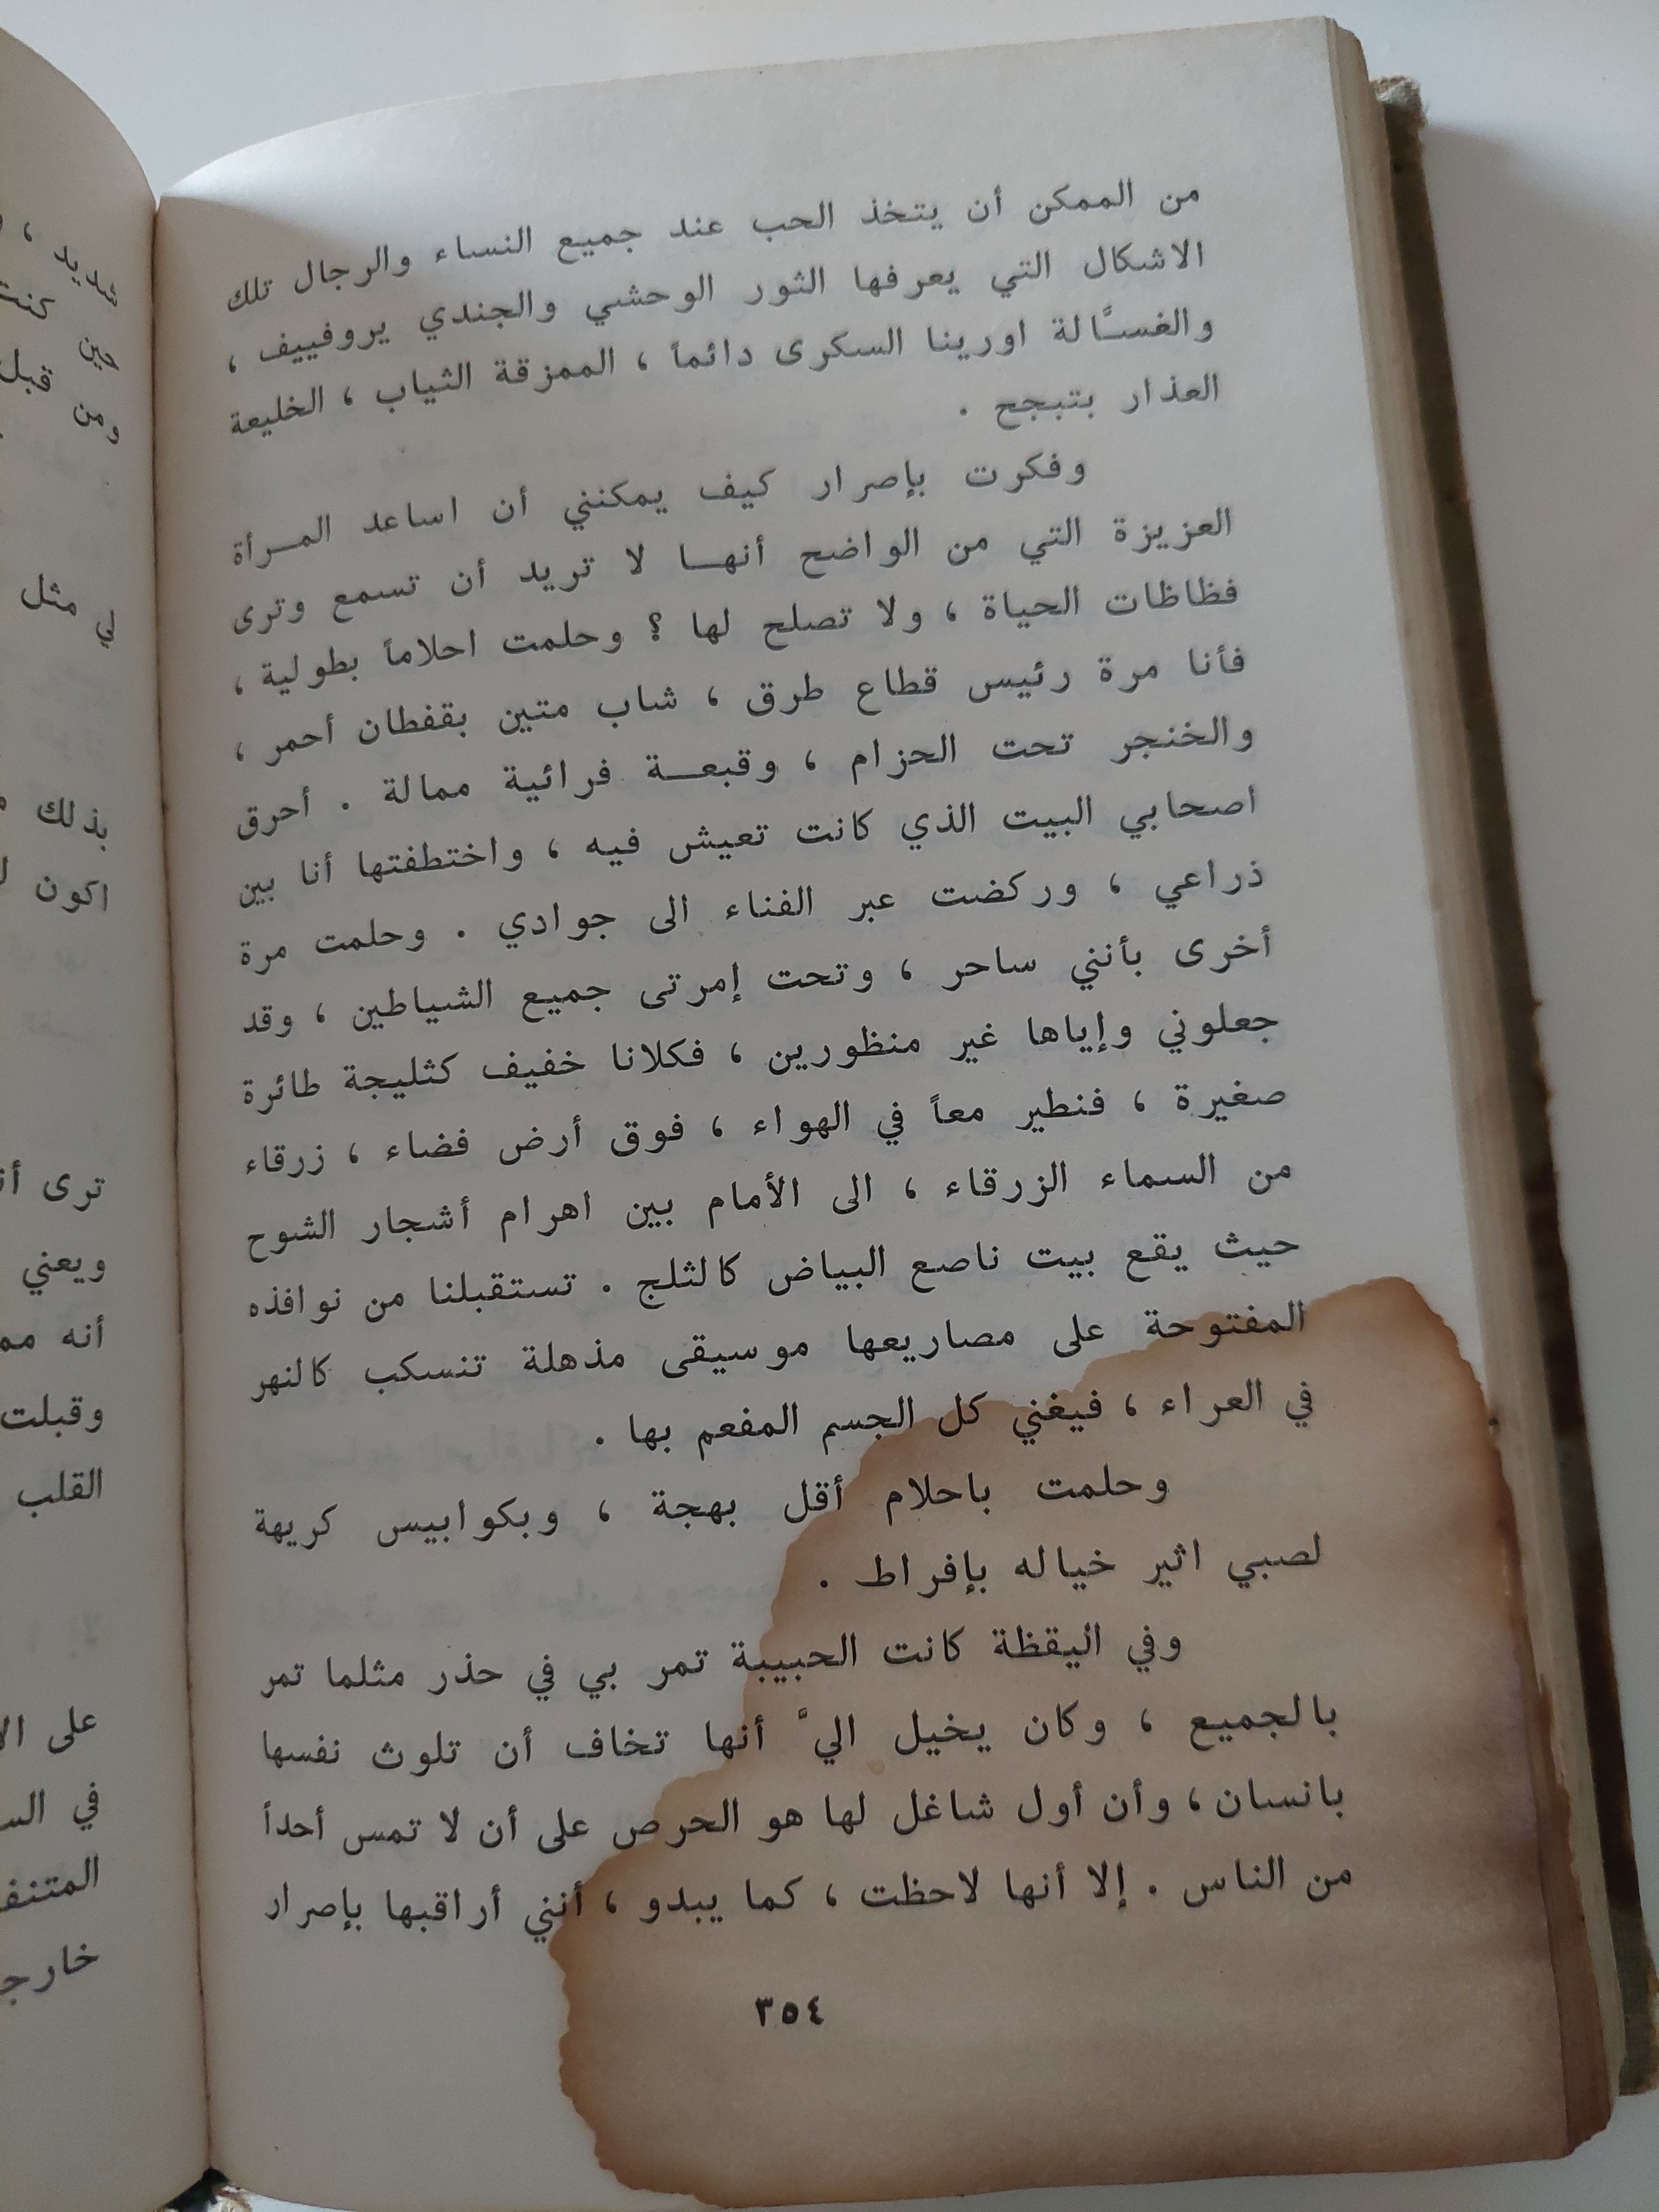 من الممكن أن يتخذ الحب عند جميع النساء والرجال تلك
الاشكال التي يعرفها الثور الوحشي والجندي يروفييف ،
والغسَّالة اورينا السكرى دائماً ، الممزقة الثياب ، الخليعة
العذار بتبجح .
وفكرت بإصرار كيف يمكنني أن اساعد المرأة
العزيزة التي من الواضح أنها لا تريد أن تسمع وترى
فظاظات الحياة ، ولا تصلح لها ؟ وحلمت احلاماً بطولية ،
فأنا مرة رئيس قطاع طرق ، شاب متين بقفطان أحمر ،
والخنجر تحت الحزام ، وقبعة فرائية ممالة . أحرق
اصحابي البيت الذي كانت تعيش فيه ، واختطفتها أنا بين
ذراعي ، وركضت عبر الفناء الى جوادي . وحلمت مرة
أخرى بأنني ساحر ، وتحت إمرتى جميع الشياطين ، وقد
جعلوني وإياها غير منظورين ، فكلانا خفيف كثليجة طائرة
صغيرة ، فنطير معاً في الهواء ، فوق أرض فضاء ، زرقاء
من السماء الزرقاء ، الى الأمام بين اهرام أشجار الشوح
حيث يقع بيت ناصع البياض كالثلج . تستقبلنا من نوافذه
المفتوحة على مصاريعها موسيقى مذهلة تنسكب كالنهر
في العراء ، فيغني كل الجسم المفعم بها .
وحلمت باحلام أقل بهجة ، وبكوابيس كريهة
لصبي اثير خياله بإفراط .
وفي اليقظة كانت الحبيبة تمر بي في حذر مثلما تمر
بالجميع ، وكان يخيل اليَّ أنها تخاف أن تلوث نفسها
بانسان ، وأن أول شاغل لها هو الحرص على أن لا تمس أحداً
من الناس . إلا أنها لاحظت ، كما يبدو ، أنني أراقبها بإصرار
٣٥٤
شديد ،
حين كنت
ومن قبل
لي مثل
بذلك
اكون
ترى
ويعني
أنه
وقبلت
القلب
على
في
خارج